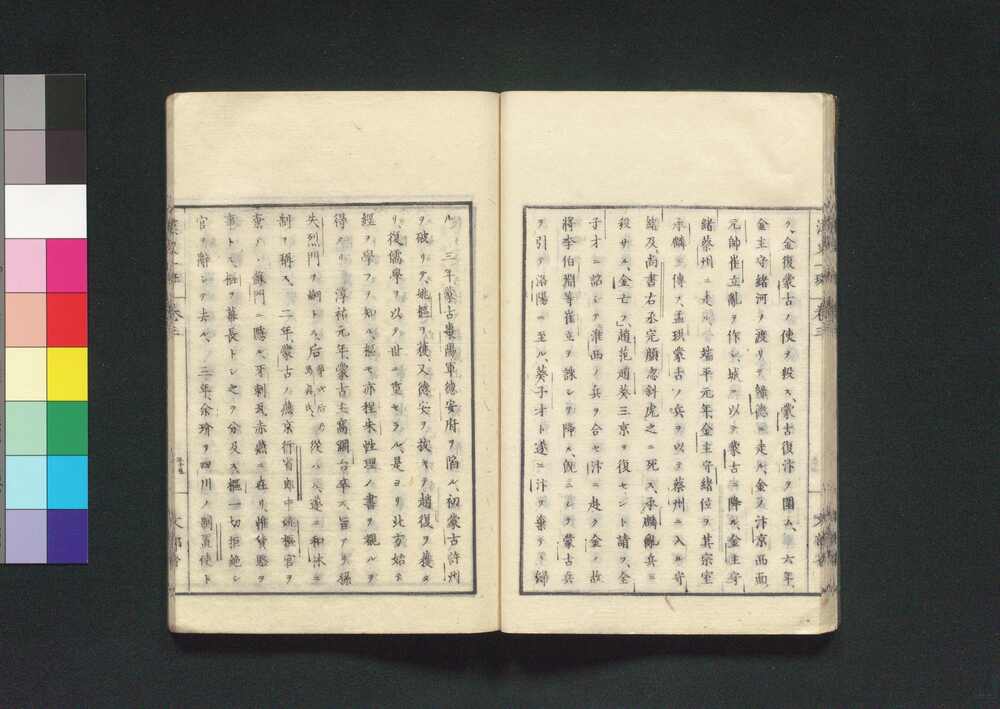 ヲ、金復蒙古ノ使ヲ殺ス、蒙古復汴ヲ圍ム、六年、
金主守緒河ヲ渡リテ歸德ニ走ル、金ノ汴京西面
元帥崔立亂ヲ作シ、城ニ以テ蒙古ニ降ル、金主守
緒蔡州ニ走ル、端平元年金主守緒位ヲ其宗室
承麟ニ傳フ、孟珙蒙古ノ兵ヲ以ヰ蔡州ニ入ル守
緒及尚書右丞完顏忽斜虎之ニ死ス、承麟亂兵ニ
殺サル、金亡フ、趙范趙葵三京ヲ復セント請フ、全
子才ニ詔シテ淮西ノ兵ヲ合セ汴ニ赴ク金ノ故
將李伯淵等崔立ヲ誅シテ降ル、既ニシテ蒙古兵
ヲ引テ洛陽ニ至ル、葵子才遂ニ汴ヲ棄テヽ歸
ル 三年蒙古襄陽軍德安府ヲ陷ル、初蒙古許州
ヲ破リテ、姚樞ヲ獲又德安ヲ拔キテ趙復ヲ獲タ
リ、復儒學ヲ以テ世ニ重セラル、是ヨリ北方始テ
經ヲ學フヲ知ル、樞モ亦程朱性理ノ書ヲ觀ルヲ
得タリ 淳祐元年、蒙古主窩闊台卒ス、旨アリ孫
失烈門ヲ嗣トス、后 從ハス、遂ニ和林ニ
制ヲ稱ス、二年、蒙古ノ燕京行省郎中姚樞官ヲ
棄テ、蘇門ニ隱ル、牙剌瓦赤燕ニ在リ、惟貨賂ヲ
事トス、樞ヲ幕長トシ之ヲ分及ス、樞一切拒絶シ
官ヲ辭シテ去ル、 二年、余玠ヲ四川ノ制置使ト